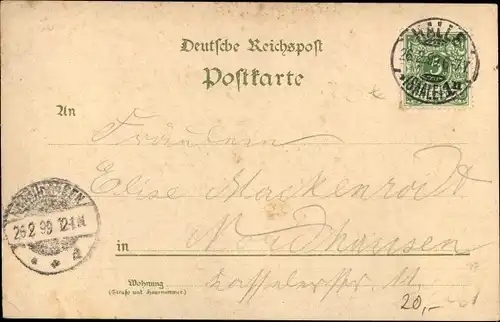 Deutsche Reichspost
Postkarte
HALLE
(SAALE) 1
An
Fräulein
Elise Mackenrodt
NORDHAUSEN
26.2.99. 12-1N
in Nordhausen
Wohnung
(Straße und Hausnummer.)
Kasselerstr. 11.
20,-